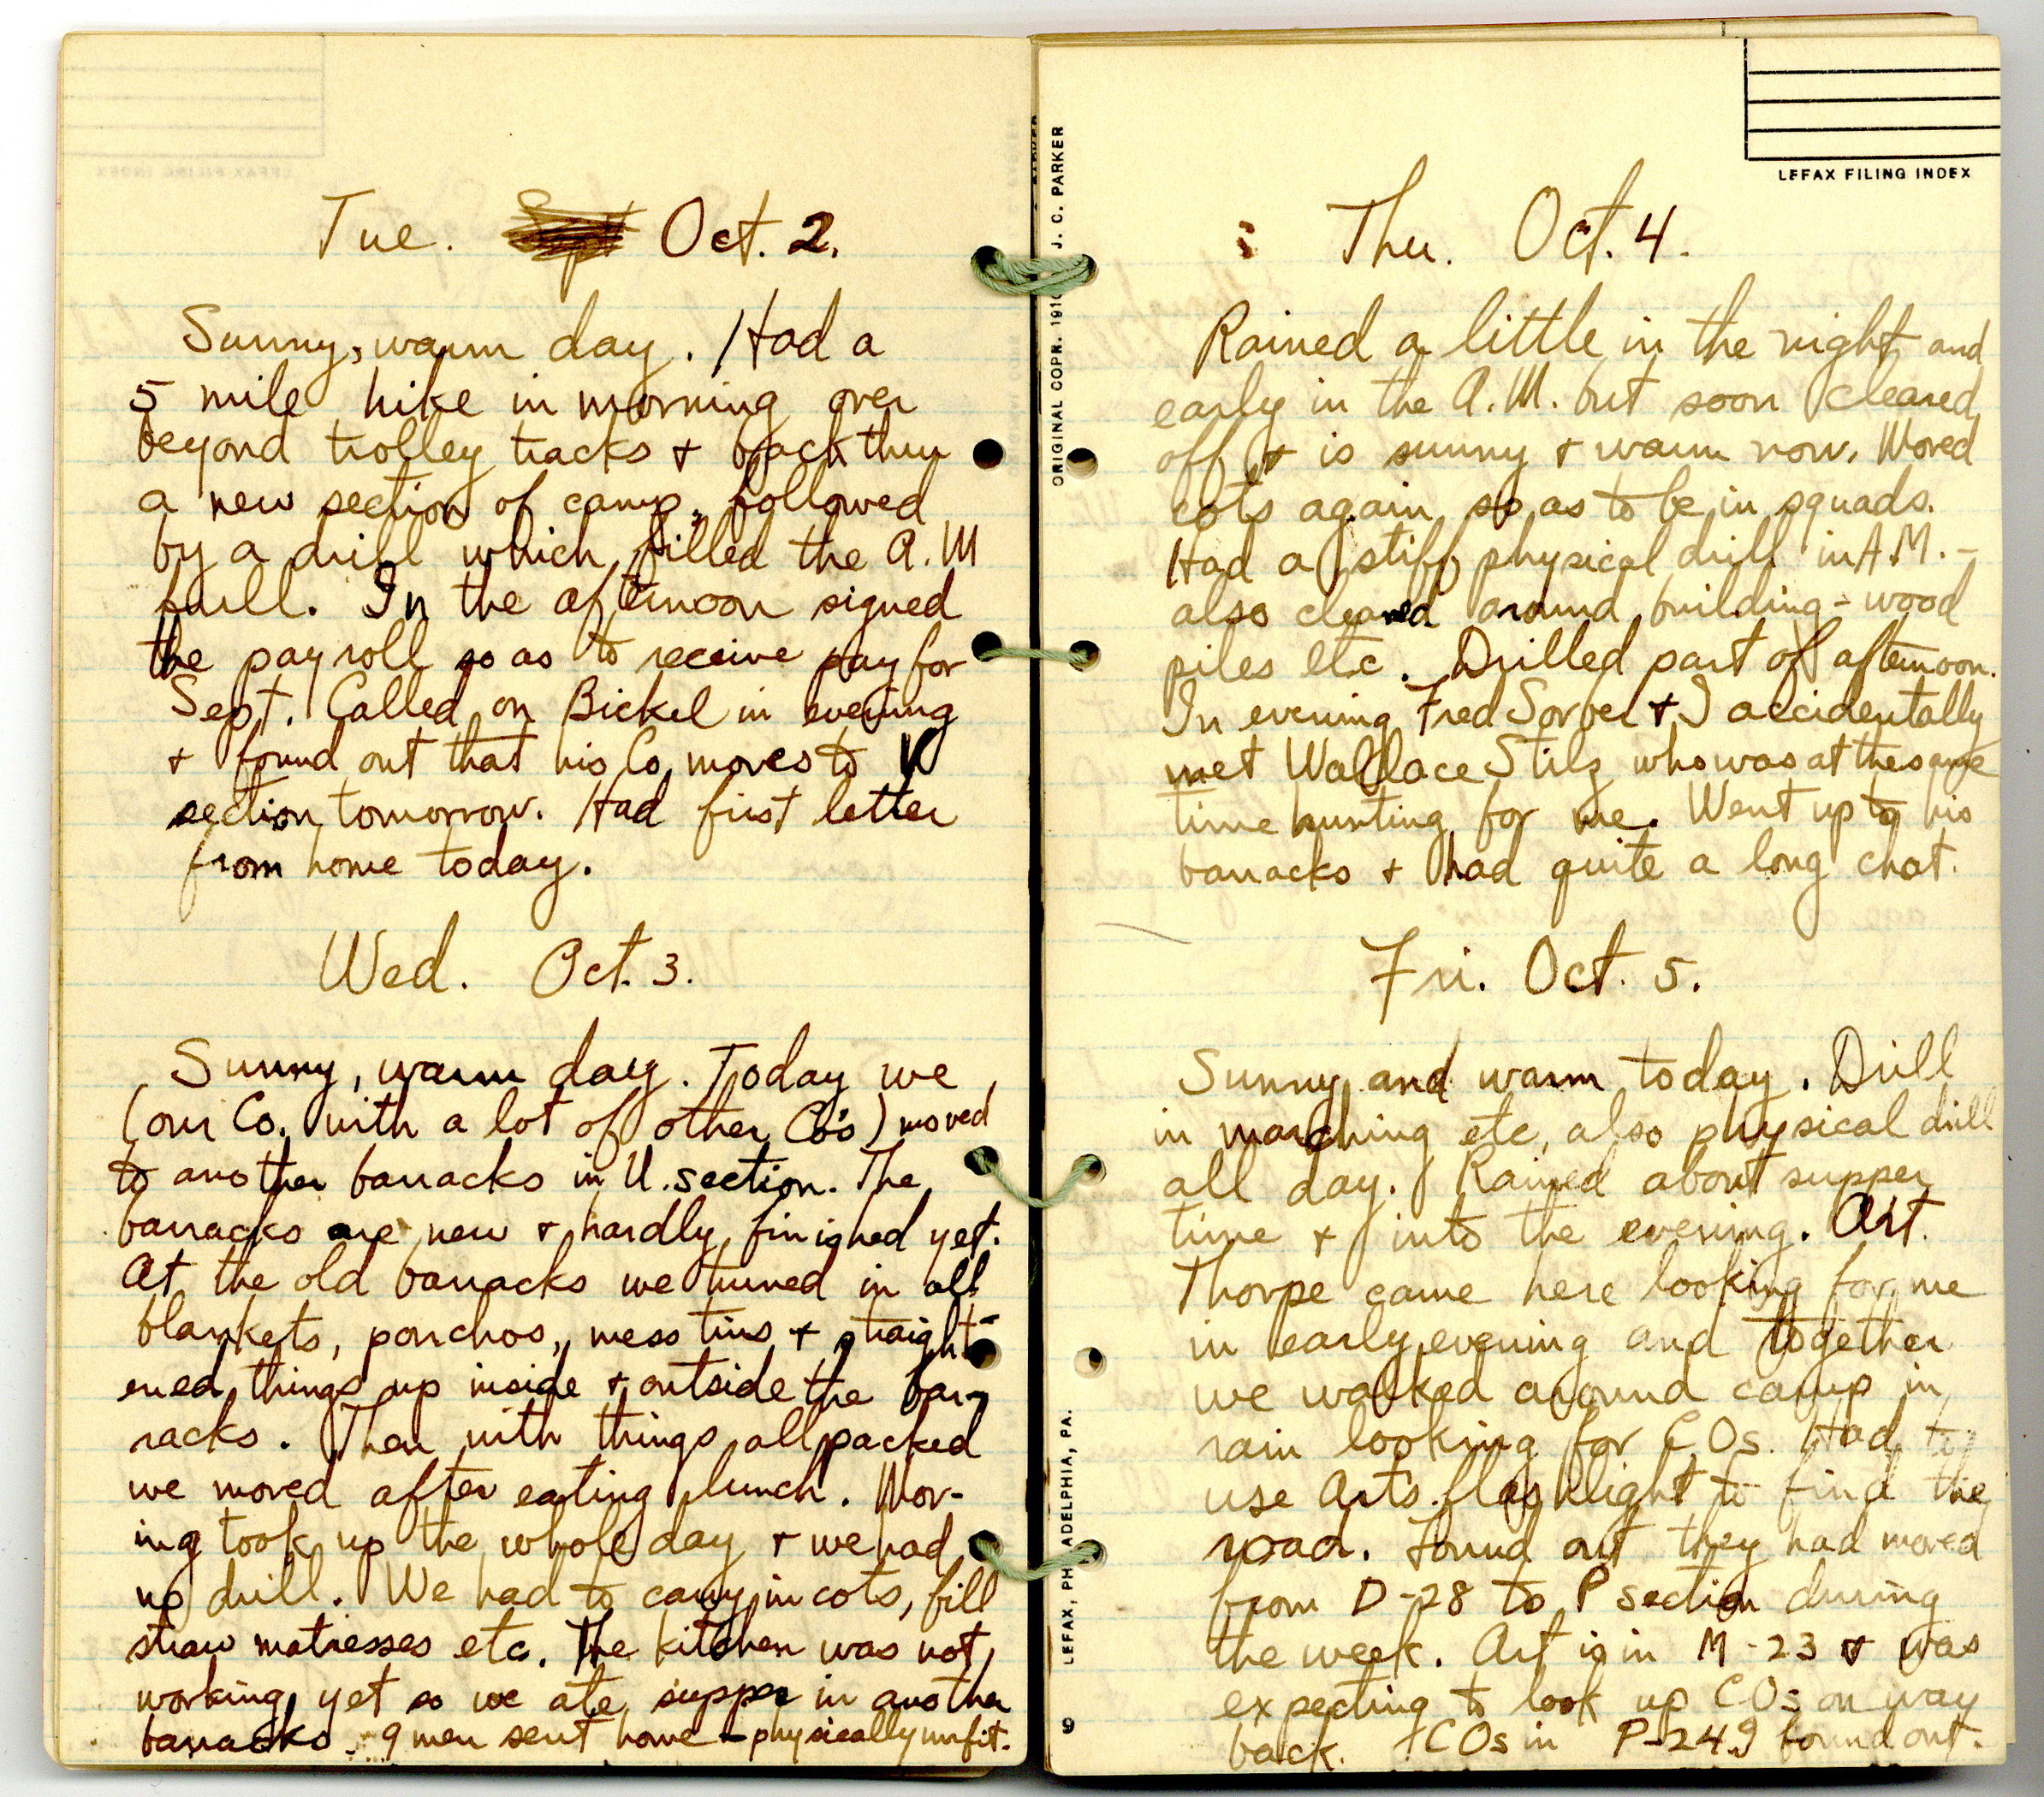 Tue. Oct. 2.
Sunny, warm day. Had a
5 mile hike in morning over
beyond trolley tracks + back thru
a new section of camp, followed
by a drill which filled the A.M
full. In the afternoon signed
the pay roll so as to receive pay for
Sept. Called on Bickel in evening
+ found out that his Co. moves to V
section tomorrow. Had first letter
from home today.
Wed. Oct. 3.
Sunny, warm day. Today we
(our Co. with a lot of other Co's) moved
to another barracks in U. section. The
barracks are new + hardly finished yet.
At the old barracks we turned in all
blankets, ponchos, mess tins + straight-
ened things up inside + outside the bar-
racks. Then with things all packed
we moved after eating lunch. Mov-
ing took up the whole day + we had
no drill. We had to carry in cots, fill
straw matresses etc. The kitchen was not
working yet so we ate supper in another
barracks. - 9 men sent home - physically unfit.
LEFAX FILING INDEX
ORIGINAL COPR. 1910 J. C. PARKER
Thu. Oct. 4.
Rained a little in the night and
early in the A.M. but soon cleared
off + is sunny + warm now. Moved
cots again so as to be in squads.
Had a stiff physical drill in A.M. -
also cleaned around building - wood
piles etc. Drilled part of afternoon.
In evening Fred Sorber + I accidentally
met Wallace Stilz who was at the same
time hunting for me. Went up to his
barracks + had quite a long chat.
Fri. Oct. 5.
Sunny and warm today. Drill
in marching etc, also physical drill
all day. Rained about supper
time + into the evening. Art.
Thorpe came here looking for me
in early evening and together
we walked around camp in
rain looking for COs. Had to
use Art's flashlight to find the
road. Found out they had moved
from D-28 to P section during
the week. Art is in M-23 + was
expecting to look up COs on way
back. COs in P-249 found out.
LEFAX, PHILADELPHIA, PA.
9